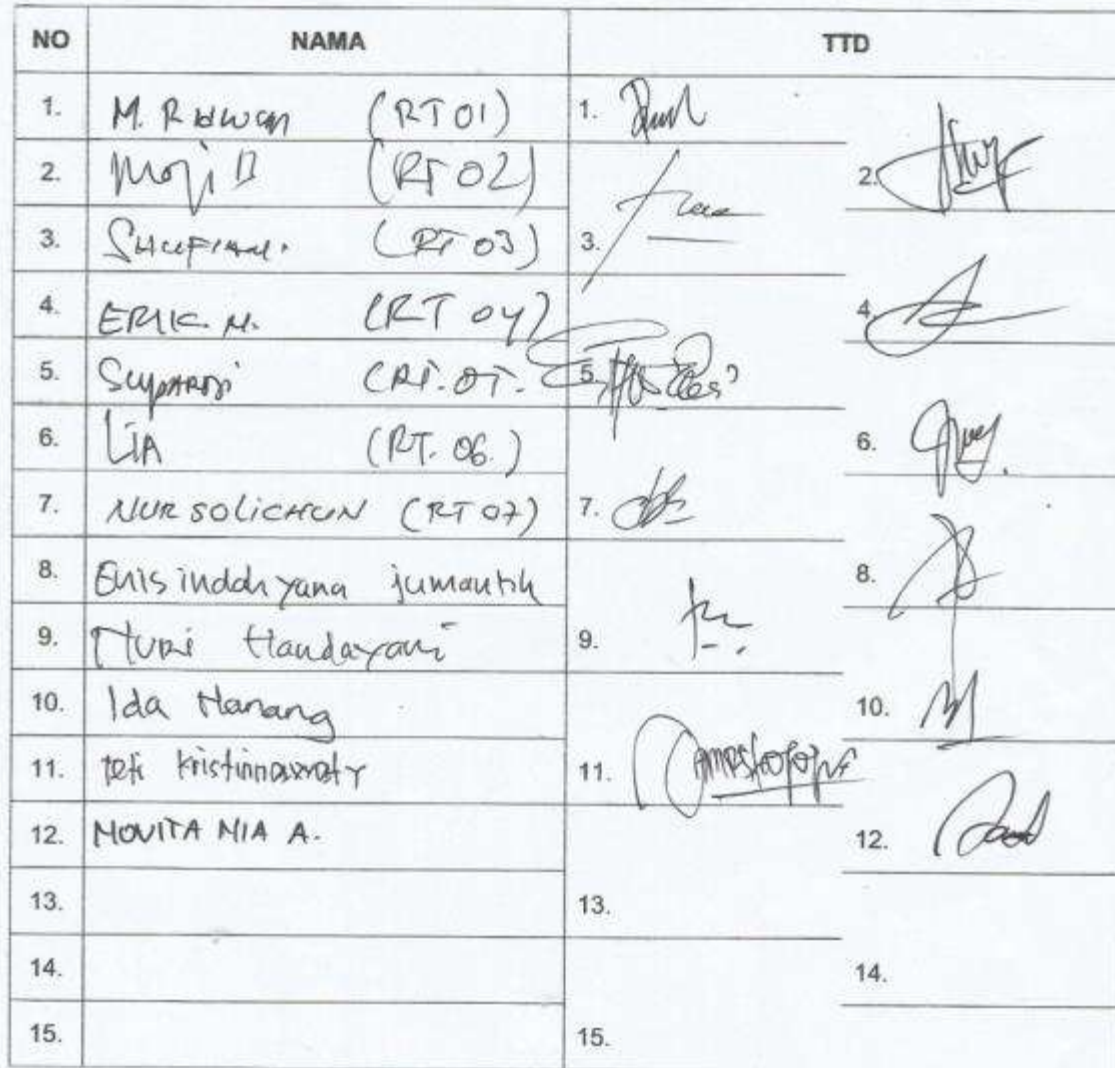 NO NAMA TTD
1. M. Ridwan (RT 01) 1.
2. Moji D (RT 02) 2.
3. (RT 03) 3.
4. ERIK. N. (RT 04) 4.
5. Supardi (RT. 05. 5.
6. LIA (RT. 06.) 6.
7. NUR SOLICHUN (RT 07) 7.
8. Enis indah yana jumantik 8.
9. Nuri Handayani 9.
10. Ida Nanang 10.
11. tefi kristinnawaty 11.
12. NOVITA NIA A. 12.
13. 13.
14. 14.
15. 15.